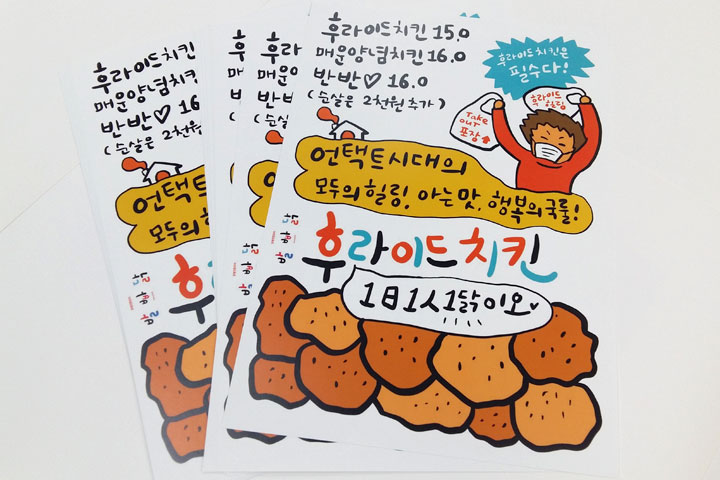 후라이드치킨 15.0
매운양념치킨 16.0
반반♡ 16.0
(순살은 2천원추가)
후라이드치킨은
필수다!
Take
out
포장
후라이드
힐링
언택트시대의
모두의힐링, 아는맛, 행복의국룰!
후라이드치킨
1日1人1닭이오
후라이드치킨
매운양념치킨
반반♡ 16
(순살은 2천원
언택트
모두의힐
후